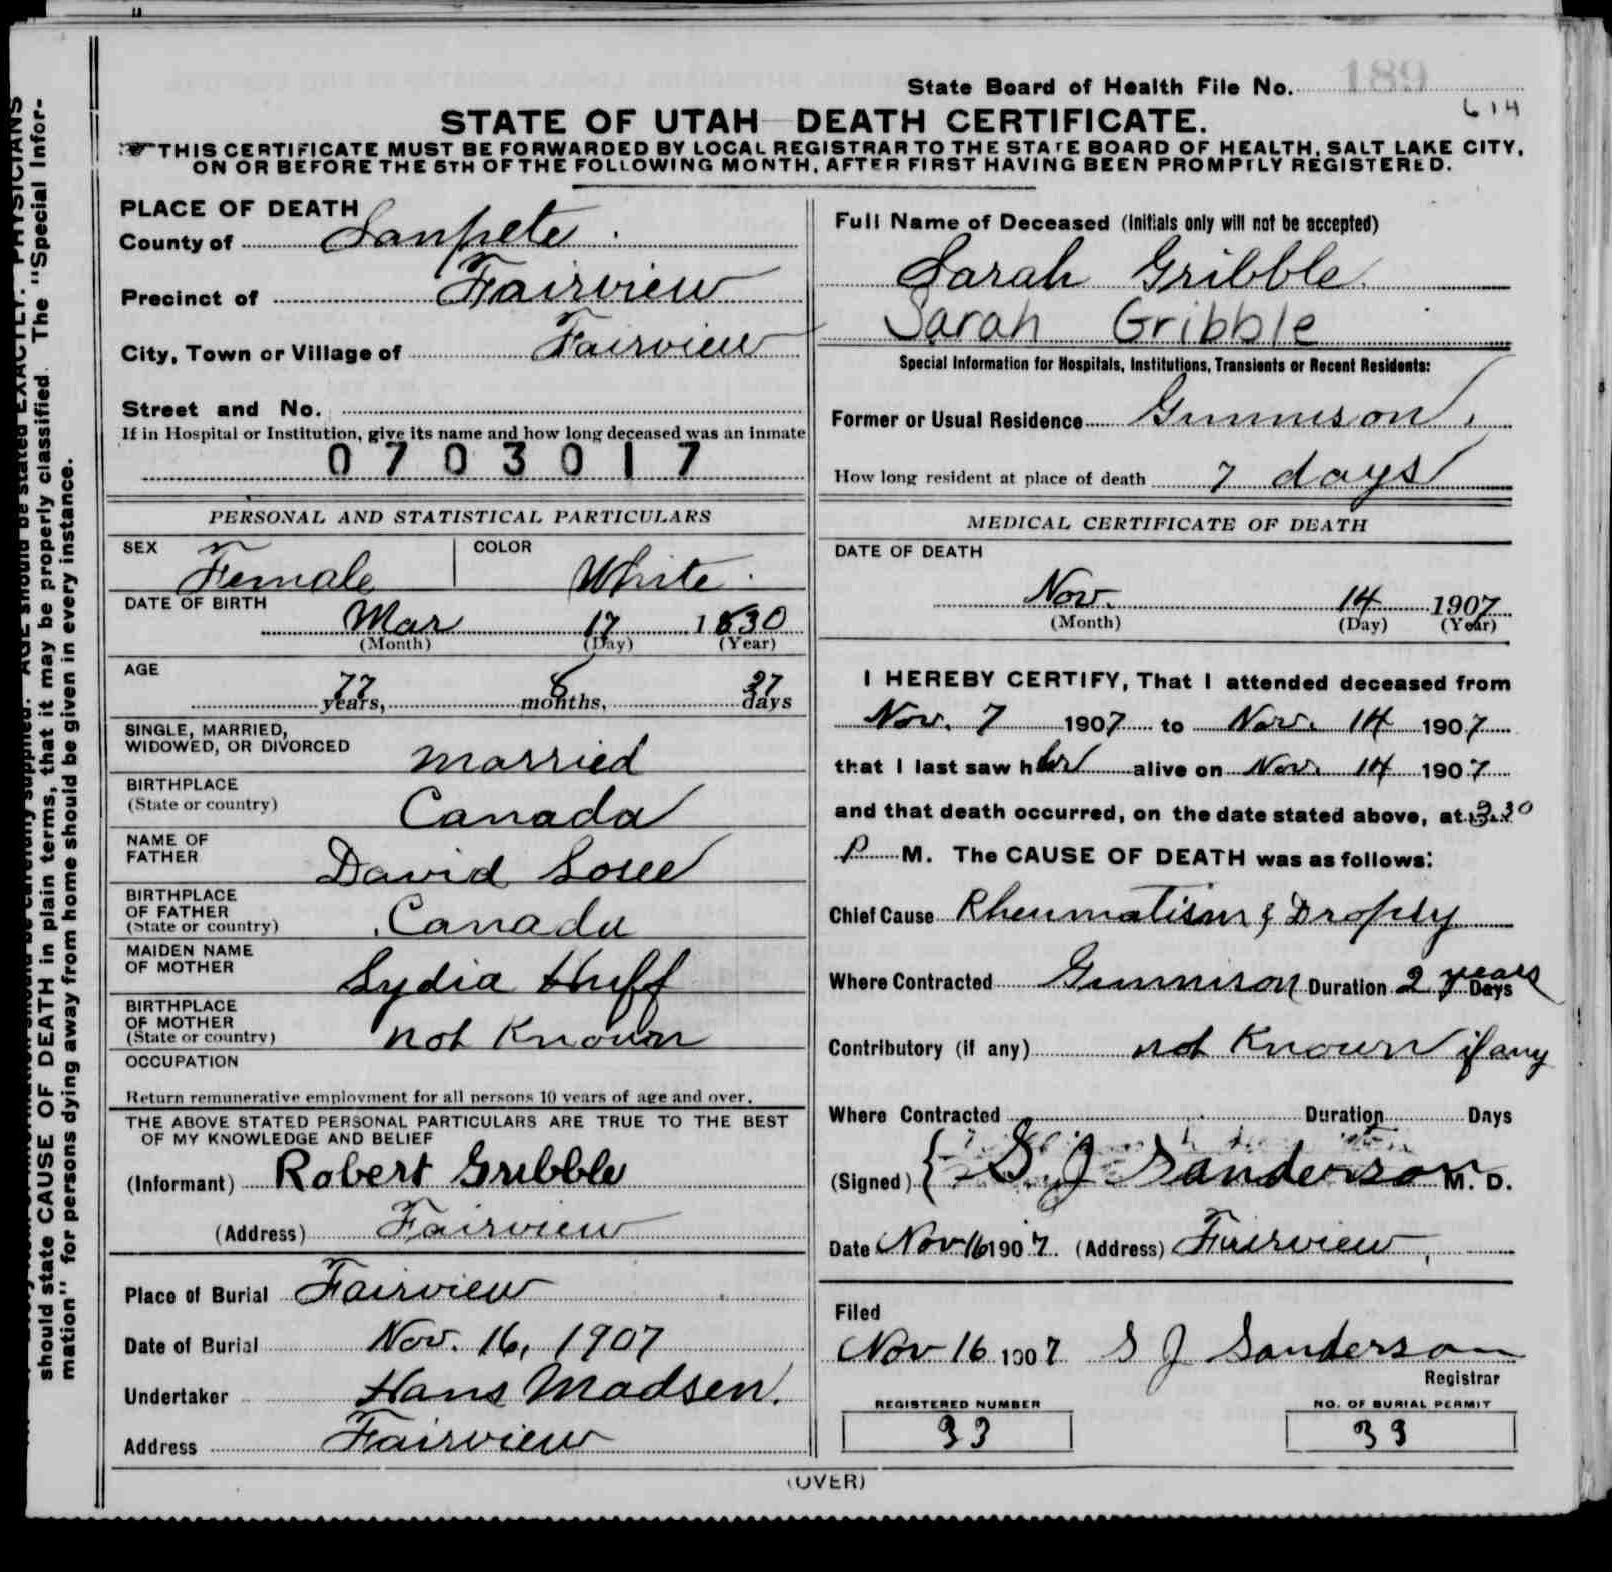 State Board of Health File No. 189
614
STATE OF UTAH DEATH CERTIFICATE.
THIS CERTIFICATE MUST BE FORWARDED BY LOCAL REGISTRAR TO THE STATE BOARD OF HEALTH, SALT LAKE CITY,
ON OR BEFORE THE 5TH OF THE FOLLOWING MONTH, AFTER FIRST HAVING BEEN PROMPTLY REGISTERED.
PLACE OF DEATH
County of Sanpete
Precinct of Fairview
City, Town or Village of Fairview
Street and No.
If in Hospital or Institution, give its name and how long deceased was an inmate
0703017
PERSONAL AND STATISTICAL PARTICULARS
SEX Female COLOR White
DATE OF BIRTH
Mar 17 1830
(Month) (Day) (Year)
AGE
77 years, 8 months, 27 days
SINGLE, MARRIED,
WIDOWED, OR DIVORCED married
BIRTHPLACE
(State or country) Canada
NAME OF
FATHER David
BIRTHPLACE
OF FATHER
(State or country) Canada
MAIDEN NAME
OF MOTHER Lydia Huff
BIRTHPLACE
OF MOTHER
(State or country) not Known
OCCUPATION
Return remunerative employment for all persons 10 years of age and over.
THE ABOVE STATED PERSONAL PARTICULARS ARE TRUE TO THE BEST
OF MY KNOWLEDGE AND BELIEF
(Informant) Robert Gribble
(Address) Fairview
Place of Burial Fairview
Date of Burial Nov. 16, 1907
Undertaker Hans Madsen.
Address Fairview
Full Name of Deceased (Initials only will not be accepted)
Sarah Gribble
Sarah Gribble
Special Information for Hospitals, Institutions, Transients or Recent Residents:
Former or Usual Residence Gunnison
How long resident at place of death 7 days
MEDICAL CERTIFICATE OF DEATH
DATE OF DEATH
Nov. 14 1907
(Month) (Day) (Year)
I HEREBY CERTIFY, That I attended deceased from
Nov. 7 1907 to Nov. 14 1907
that I last saw her alive on Nov. 14 1907
and that death occurred, on the date stated above, at 3.30
P M. The CAUSE OF DEATH was as follows:
Chief Cause Rheumatism & Dropsy
Where Contracted Gunnison Duration 2 years Days
Contributory (if any) not Known if any
Where Contracted Duration Days
(Signed) S J Sanderson M. D.
Date Nov 16 1907. (Address) Fairview
Filed
Nov 16 1907 S J Sanderson
Registrar
REGISTERED NUMBER NO. OF BURIAL PERMIT
33 33
(OVER)
AGE should be stated EXACTLY. PHYSICIANS
should state CAUSE OF DEATH in plain terms, that it may be properly classified. The "Special Infor-
mation" for persons dying away from home should be given in every instance.